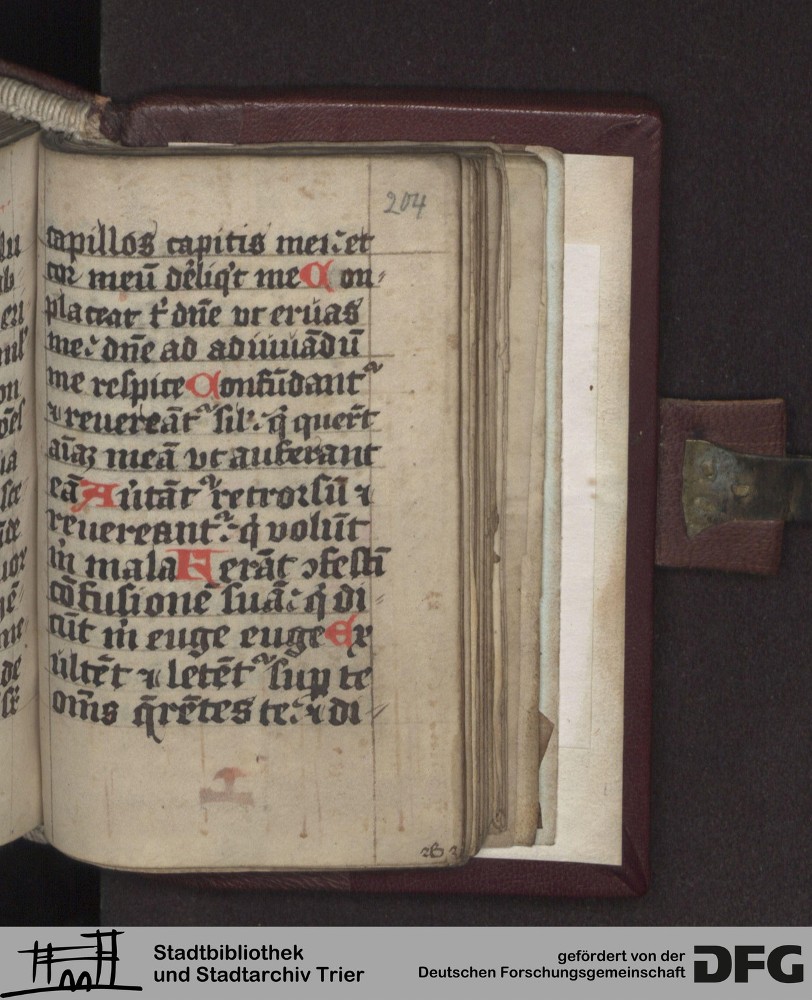 204
capillos capitis mei: et
cor meū dēliq't me Con-
placeat t' dn̄e vt eruas
me: dn̄e ad adiuuādū
me respice Confūdant᷑
⁊ reuereāt᷑ sil': q̄ quer̄t
aīaȝ meā vt auferant
eā Au'tāt᷑ retrorsū ⁊
reuereant᷑: q̄ volūt
m' mala Ferāt ↄfestī
cōfusionē suā: q̄ di-
cūt m' euge euge Ex
ultēt ⁊ letēt᷑ sup te
om̄s q̄rētes te: ⁊ di-
Stadtbibliothek
und Stadtarchiv Trier
gefördert von der
Deutschen Forschungsgemeinschaft
DFG